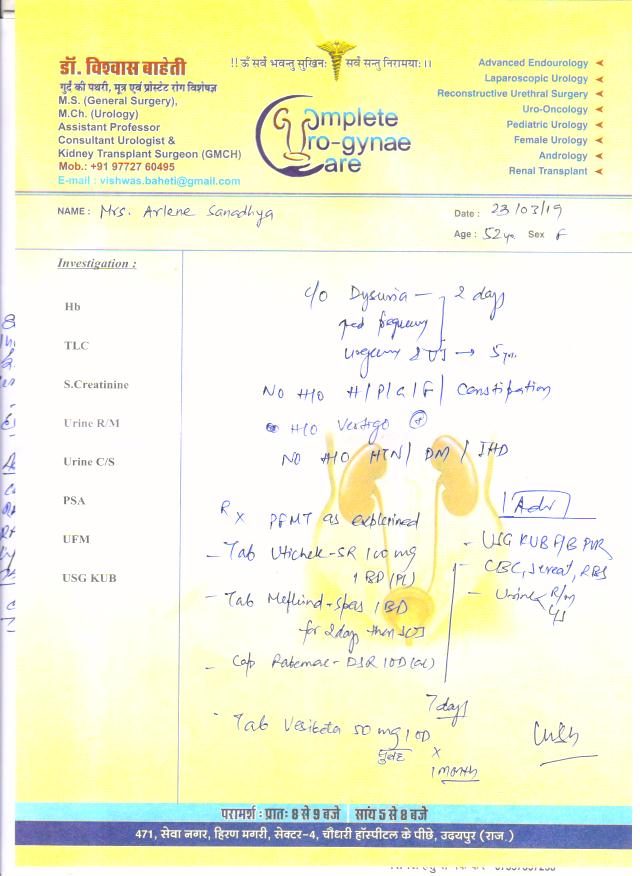 डॉ. विश्वास बाहेती
गुर्दे की पथरी, मूत्र एवं प्रोस्टेट रोग विशेषज्ञ
M.S. (General Surgery),
M.Ch. (Urology)
Assistant Professor
Consultant Urologist &
Kidney Transplant Surgeon (GMCH)
Mob.: +91 97727 60495
E-mail : vishwas.baheti@gmail.com
!! ॐ सर्वे भवन्तु सुखिनः सर्वे सन्तु निरामयाः।।
Complete
Uro-gynae
Care
Advanced Endourology
Laparoscopic Urology
Reconstructive Urethral Surgery
Uro-Oncology
Pediatric Urology
Female Urology
Andrology
Renal Transplant
NAME : Mrs. Arlene Sanadhya
Date : 23/03/19
Age : 52 yr Sex F
Investigation :
Hb
TLC
S.Creatinine
Urine R/M
Urine C/S
PSA
UFM
USG KUB
c/o Dysuria — 2 days
frequency
urgency → 5 yr.
NO H/O H/P/G/F/ Constipation
H/O Vertigo +
NO H/O HTN/ DM / IHD
Rx PFMT as explained
- Tab Utichek-SR 100 mg
1 BD (PC)
- Tab Meftind-Spas 1 BD
for 2 days then SOS
- Cap Rabemac-DSR 1 OD (ac)
7 days
- Tab Vesibeta 50 mg 1 OD
x
1 month
Adv
- USG KUB PVR
- CBC, S creat, RBS
- Urine R/M
C/S
परामर्श : प्रातः 8 से 9 बजे सायं 5 से 8 बजे
471, सेवा नगर, हिरण मगरी, सेक्टर-4, चौधरी हॉस्पीटल के पीछे, उदयपुर (राज.)